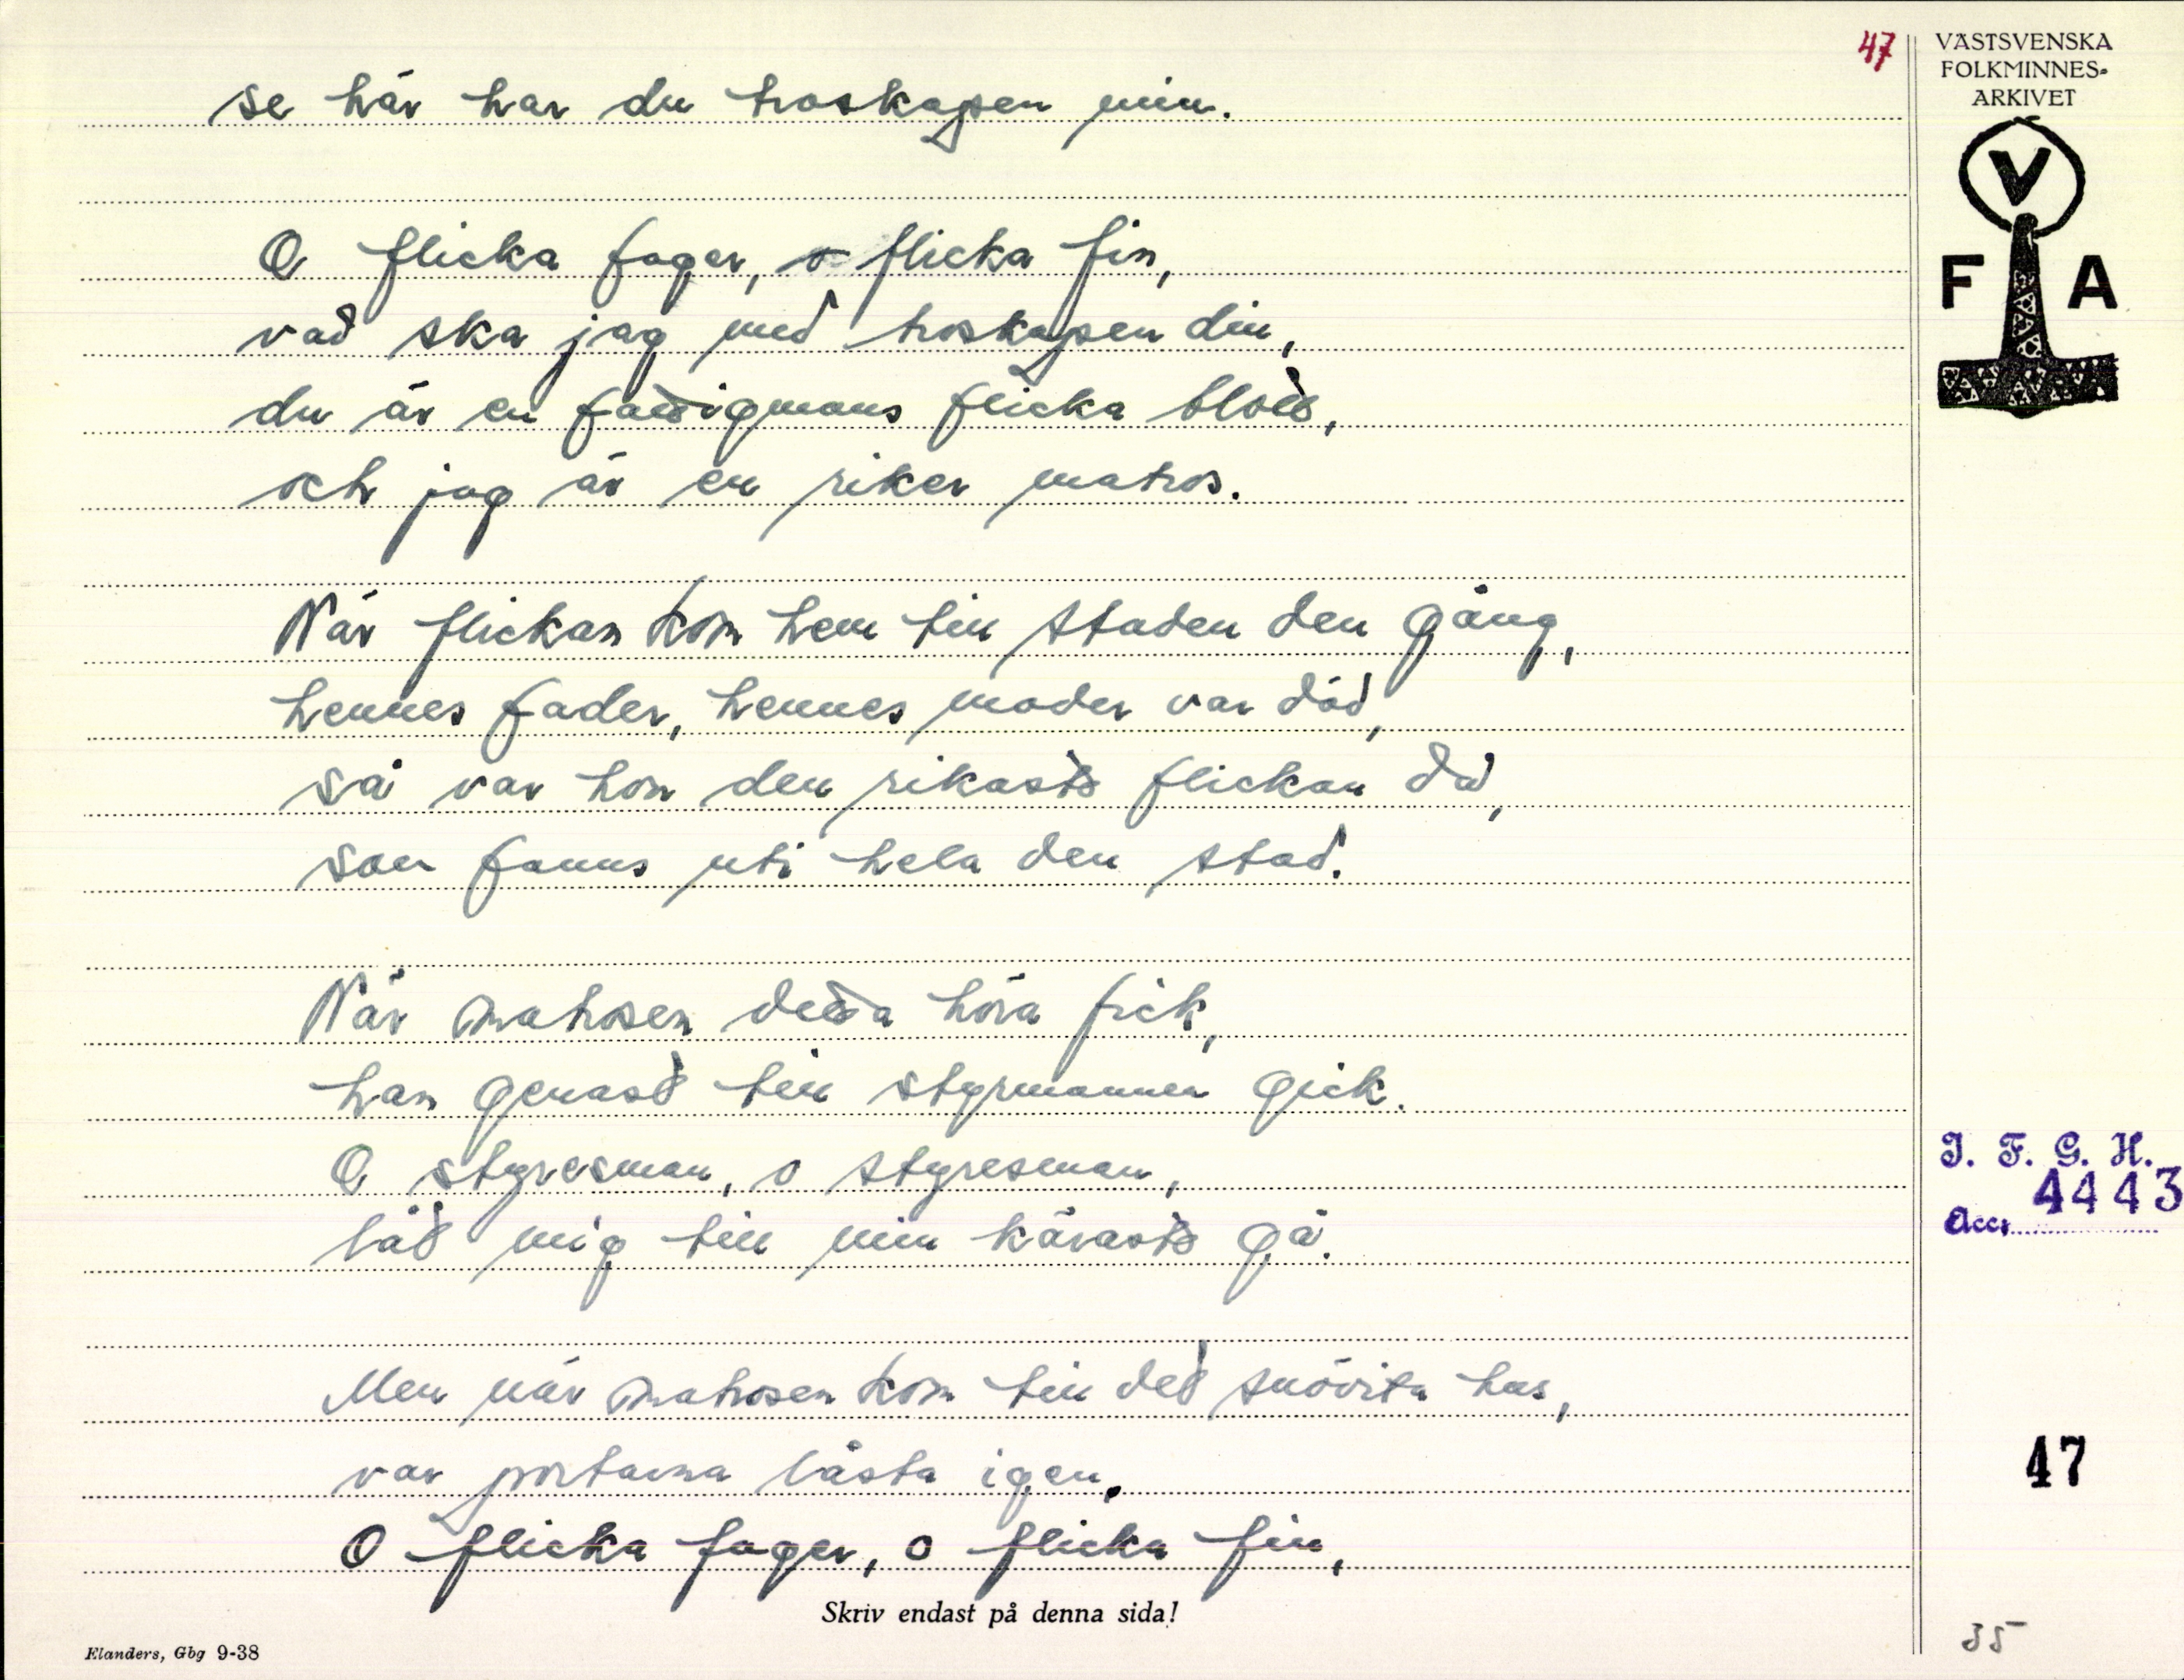 47
VÄSTSVENSKA
FOLKMINNES-
ARKIVET
V
F A
se här har du troskapen min.
O flicka fager, o flicka fin,
vad ska jag med troskapen din,
du är en fattigmans flicka blott,
och jag är en riker matros.
När flickan kom hem till staden den gång,
hennes fader, hennes moder var död,
så var hon den rikaste flickan då,
som fanns uti hela den stad.
När matrosen detta höra fick,
han genast till styrmannen gick.
O styresman, o styresman,
låt mig till min käraste gå.
Men när matrosen kom till det snövita hus,
var portarna låsta igen.
O flicka fager, o flicka fin,
I. F. G. H.
4443
Acc.
47
Skriv endast på denna sida!
Elanders, Gbg 9-38
35